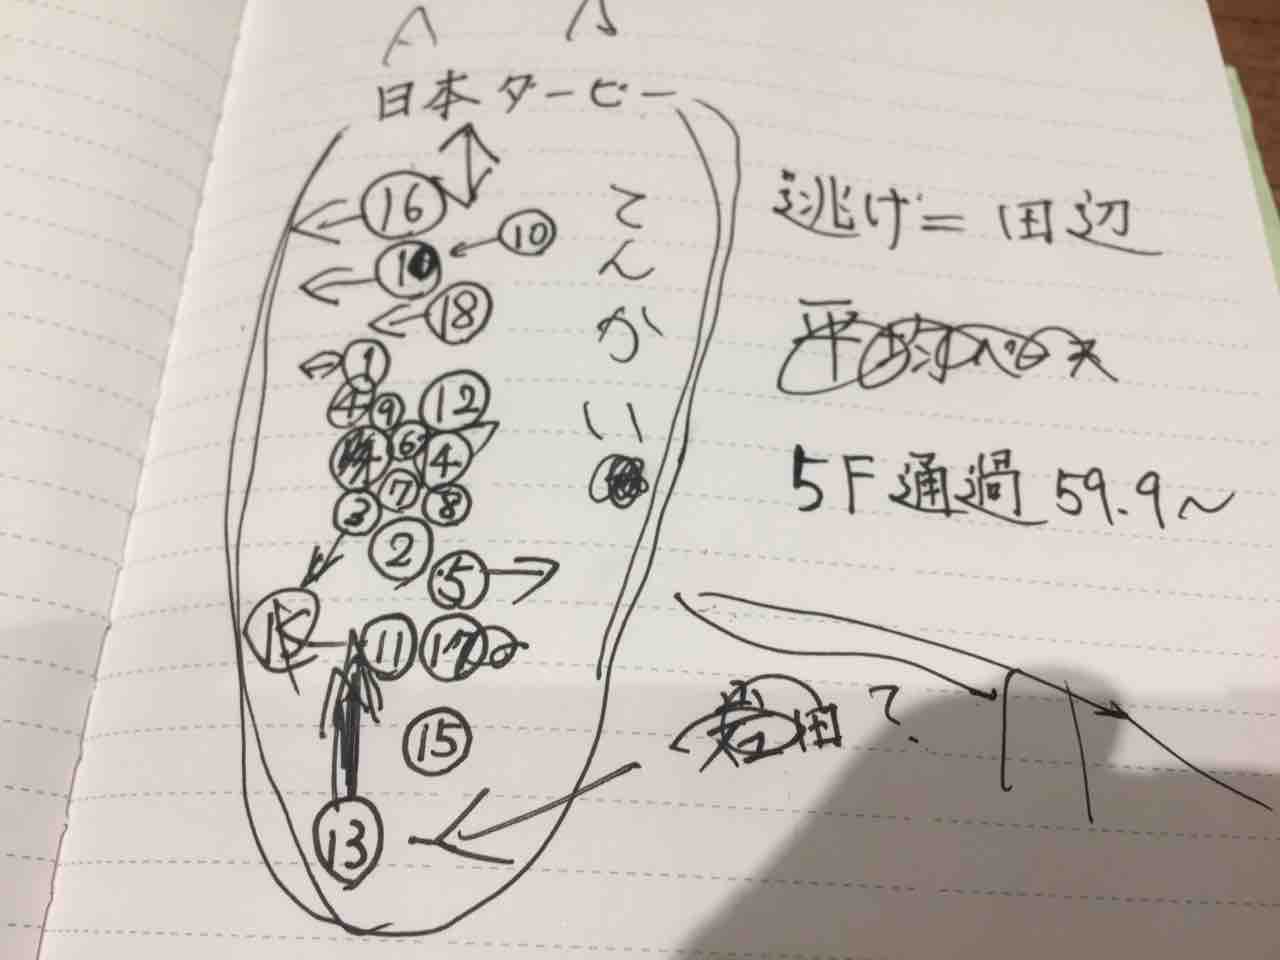 A
日本ダービー
16
10
18
てんかい
1
9
12
6
4
7
8
3
2
5
11
17
15
13
逃げ=田辺
平均ペース
5F通過 59.9~
岩田?